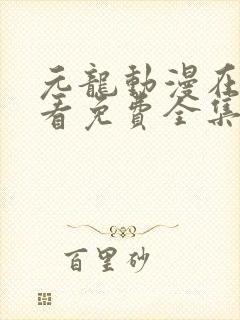 元龍動漫在
看免費全集
百里砂